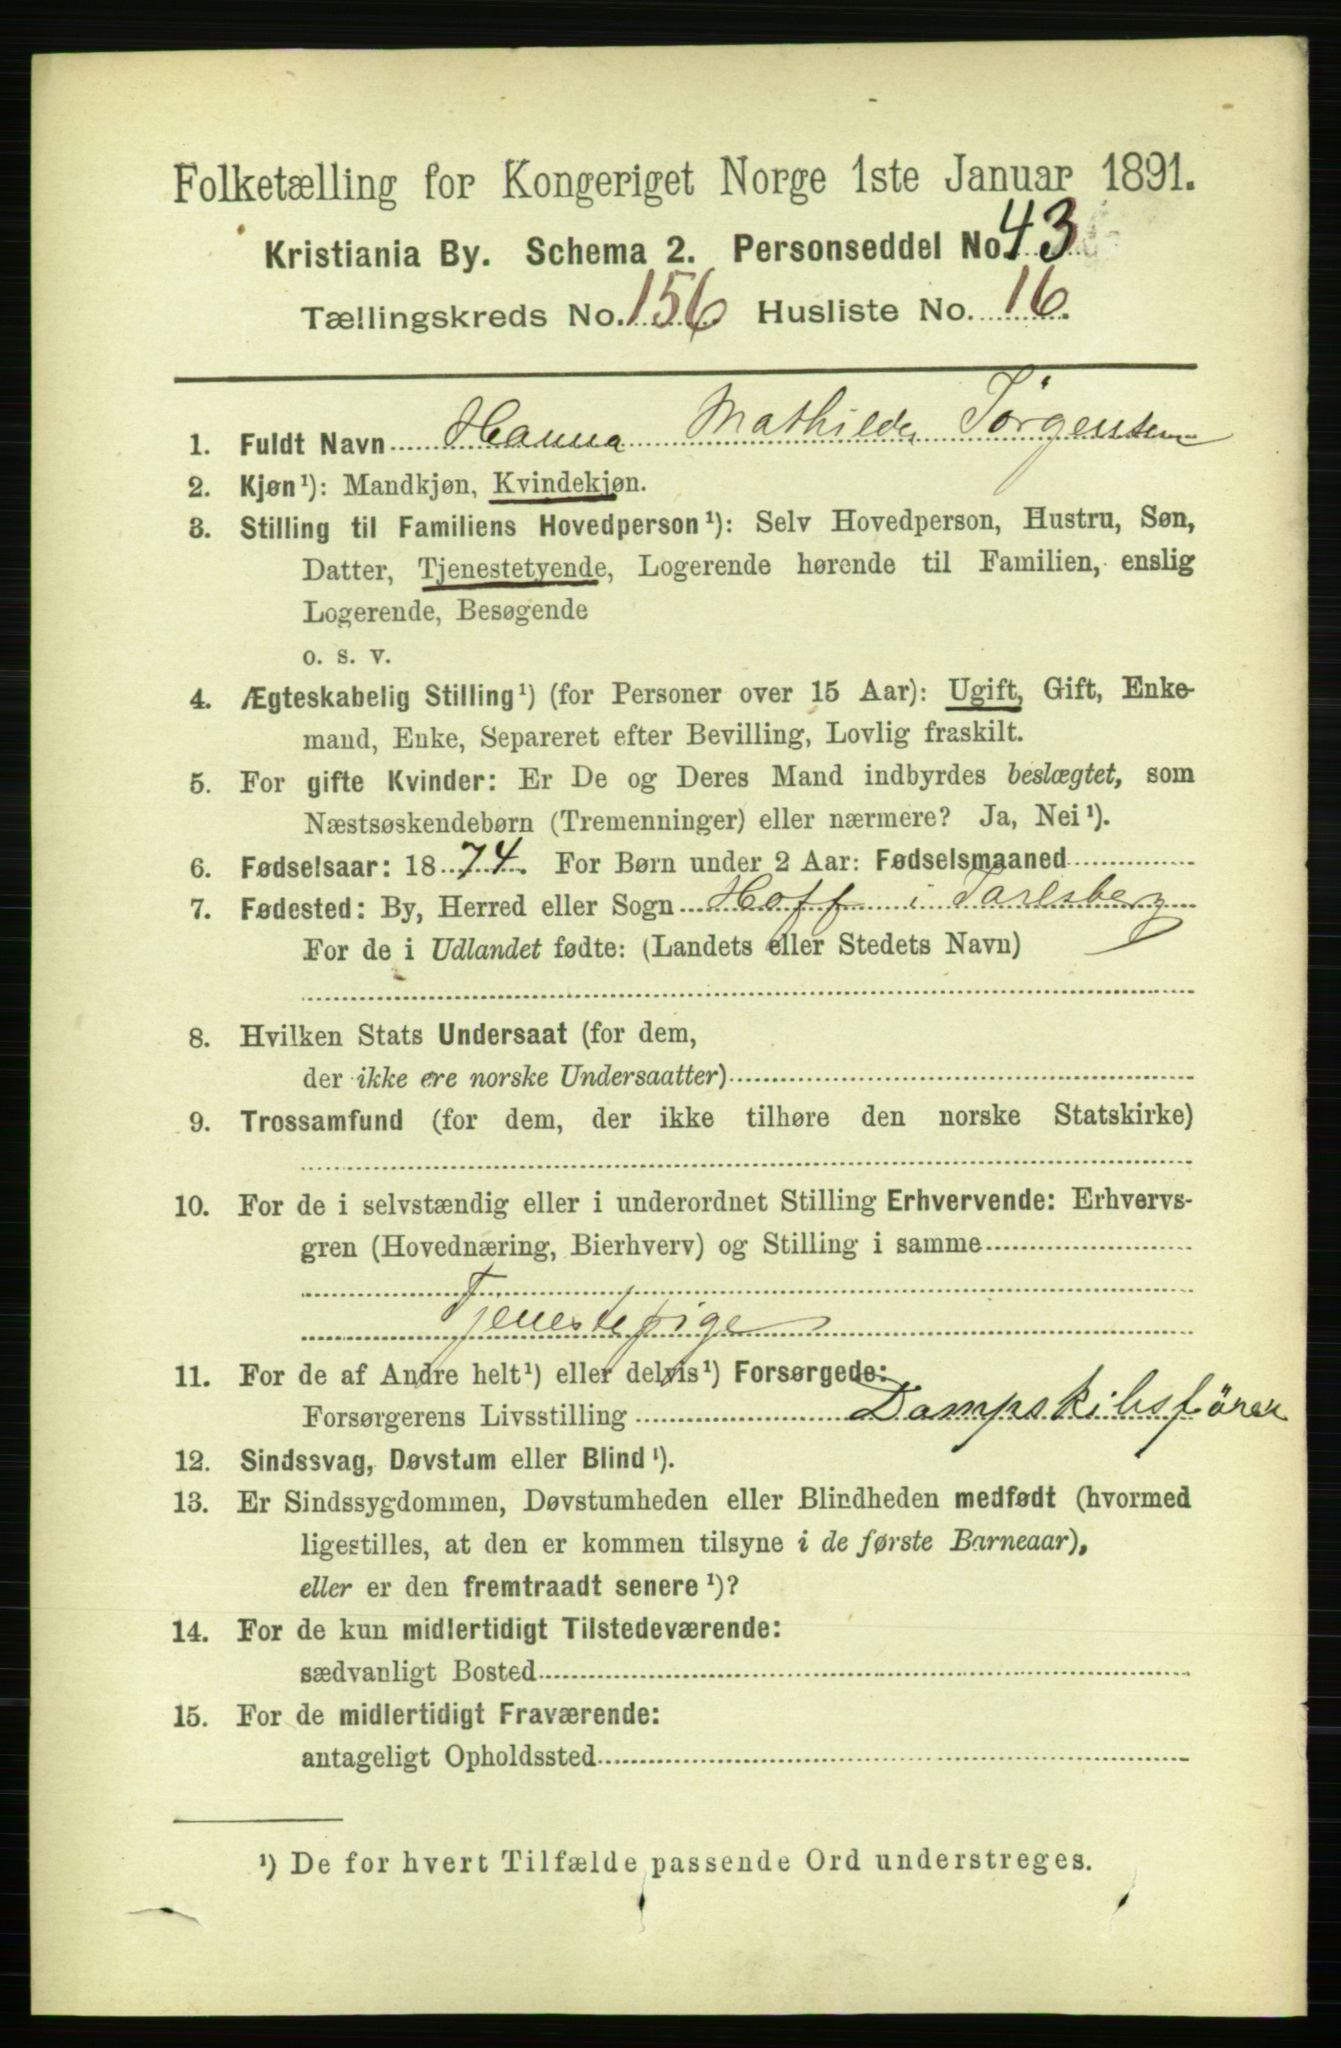 Folketælling for Kongeriget Norge 1ste Januar 1891.
Kristiania By. Schema 2. Personseddel No. 43
Tællingskreds No. 156 Husliste No. 16.
1. Fuldt Navn Hanna Mathilde Jörgensen
2. Kjøn¹): Mandkjøn, Kvindekjøn.
3. Stilling til Familiens Hovedperson¹): Selv Hovedperson, Hustru, Søn,
Datter, Tjenestetyende, Logerende hørende til Familien, enslig
Logerende, Besøgende
o. s. v.
4. Ægteskabelig Stilling¹) (for Personer over 15 Aar): Ugift, Gift, Enke-
mand, Enke, Separeret efter Bevilling, Lovlig fraskilt.
5. For gifte Kvinder: Er De og Deres Mand indbyrdes beslægtet, som
Næstsøskendebørn (Tremenninger) eller nærmere? Ja, Nei¹).
6. Fødselsaar: 1874. For Børn under 2 Aar: Fødselsmaaned
7. Fødested: By, Herred eller Sogn Hoff i Jarlsberg
For de i Udlandet fødte: (Landets eller Stedets Navn)
8. Hvilken Stats Undersaat (for dem,
der ikke ere norske Undersaatter)
9. Trossamfund (for dem, der ikke tilhøre den norske Statskirke)
10. For de i selvstændig eller i underordnet Stilling Erhvervende: Erhvervs-
gren (Hovednæring, Bierhverv) og Stilling i samme
Tjenestepige
11. For de af Andre helt¹) eller delvis¹) Forsørgede:
Forsørgerens Livsstilling Dampskibsförer
12. Sindssvag, Døvstum eller Blind¹).
13. Er Sindssygdommen, Døvstumheden eller Blindheden medfødt (hvormed
ligestilles, at den er kommen tilsyne i de første Barneaar),
eller er den fremtraadt senere¹)?
14. For de kun midlertidigt Tilstedeværende:
sædvanligt Bosted
15. For de midlertidigt Fraværende:
antageligt Opholdssted
¹) De for hvert Tilfælde passende Ord understreges.